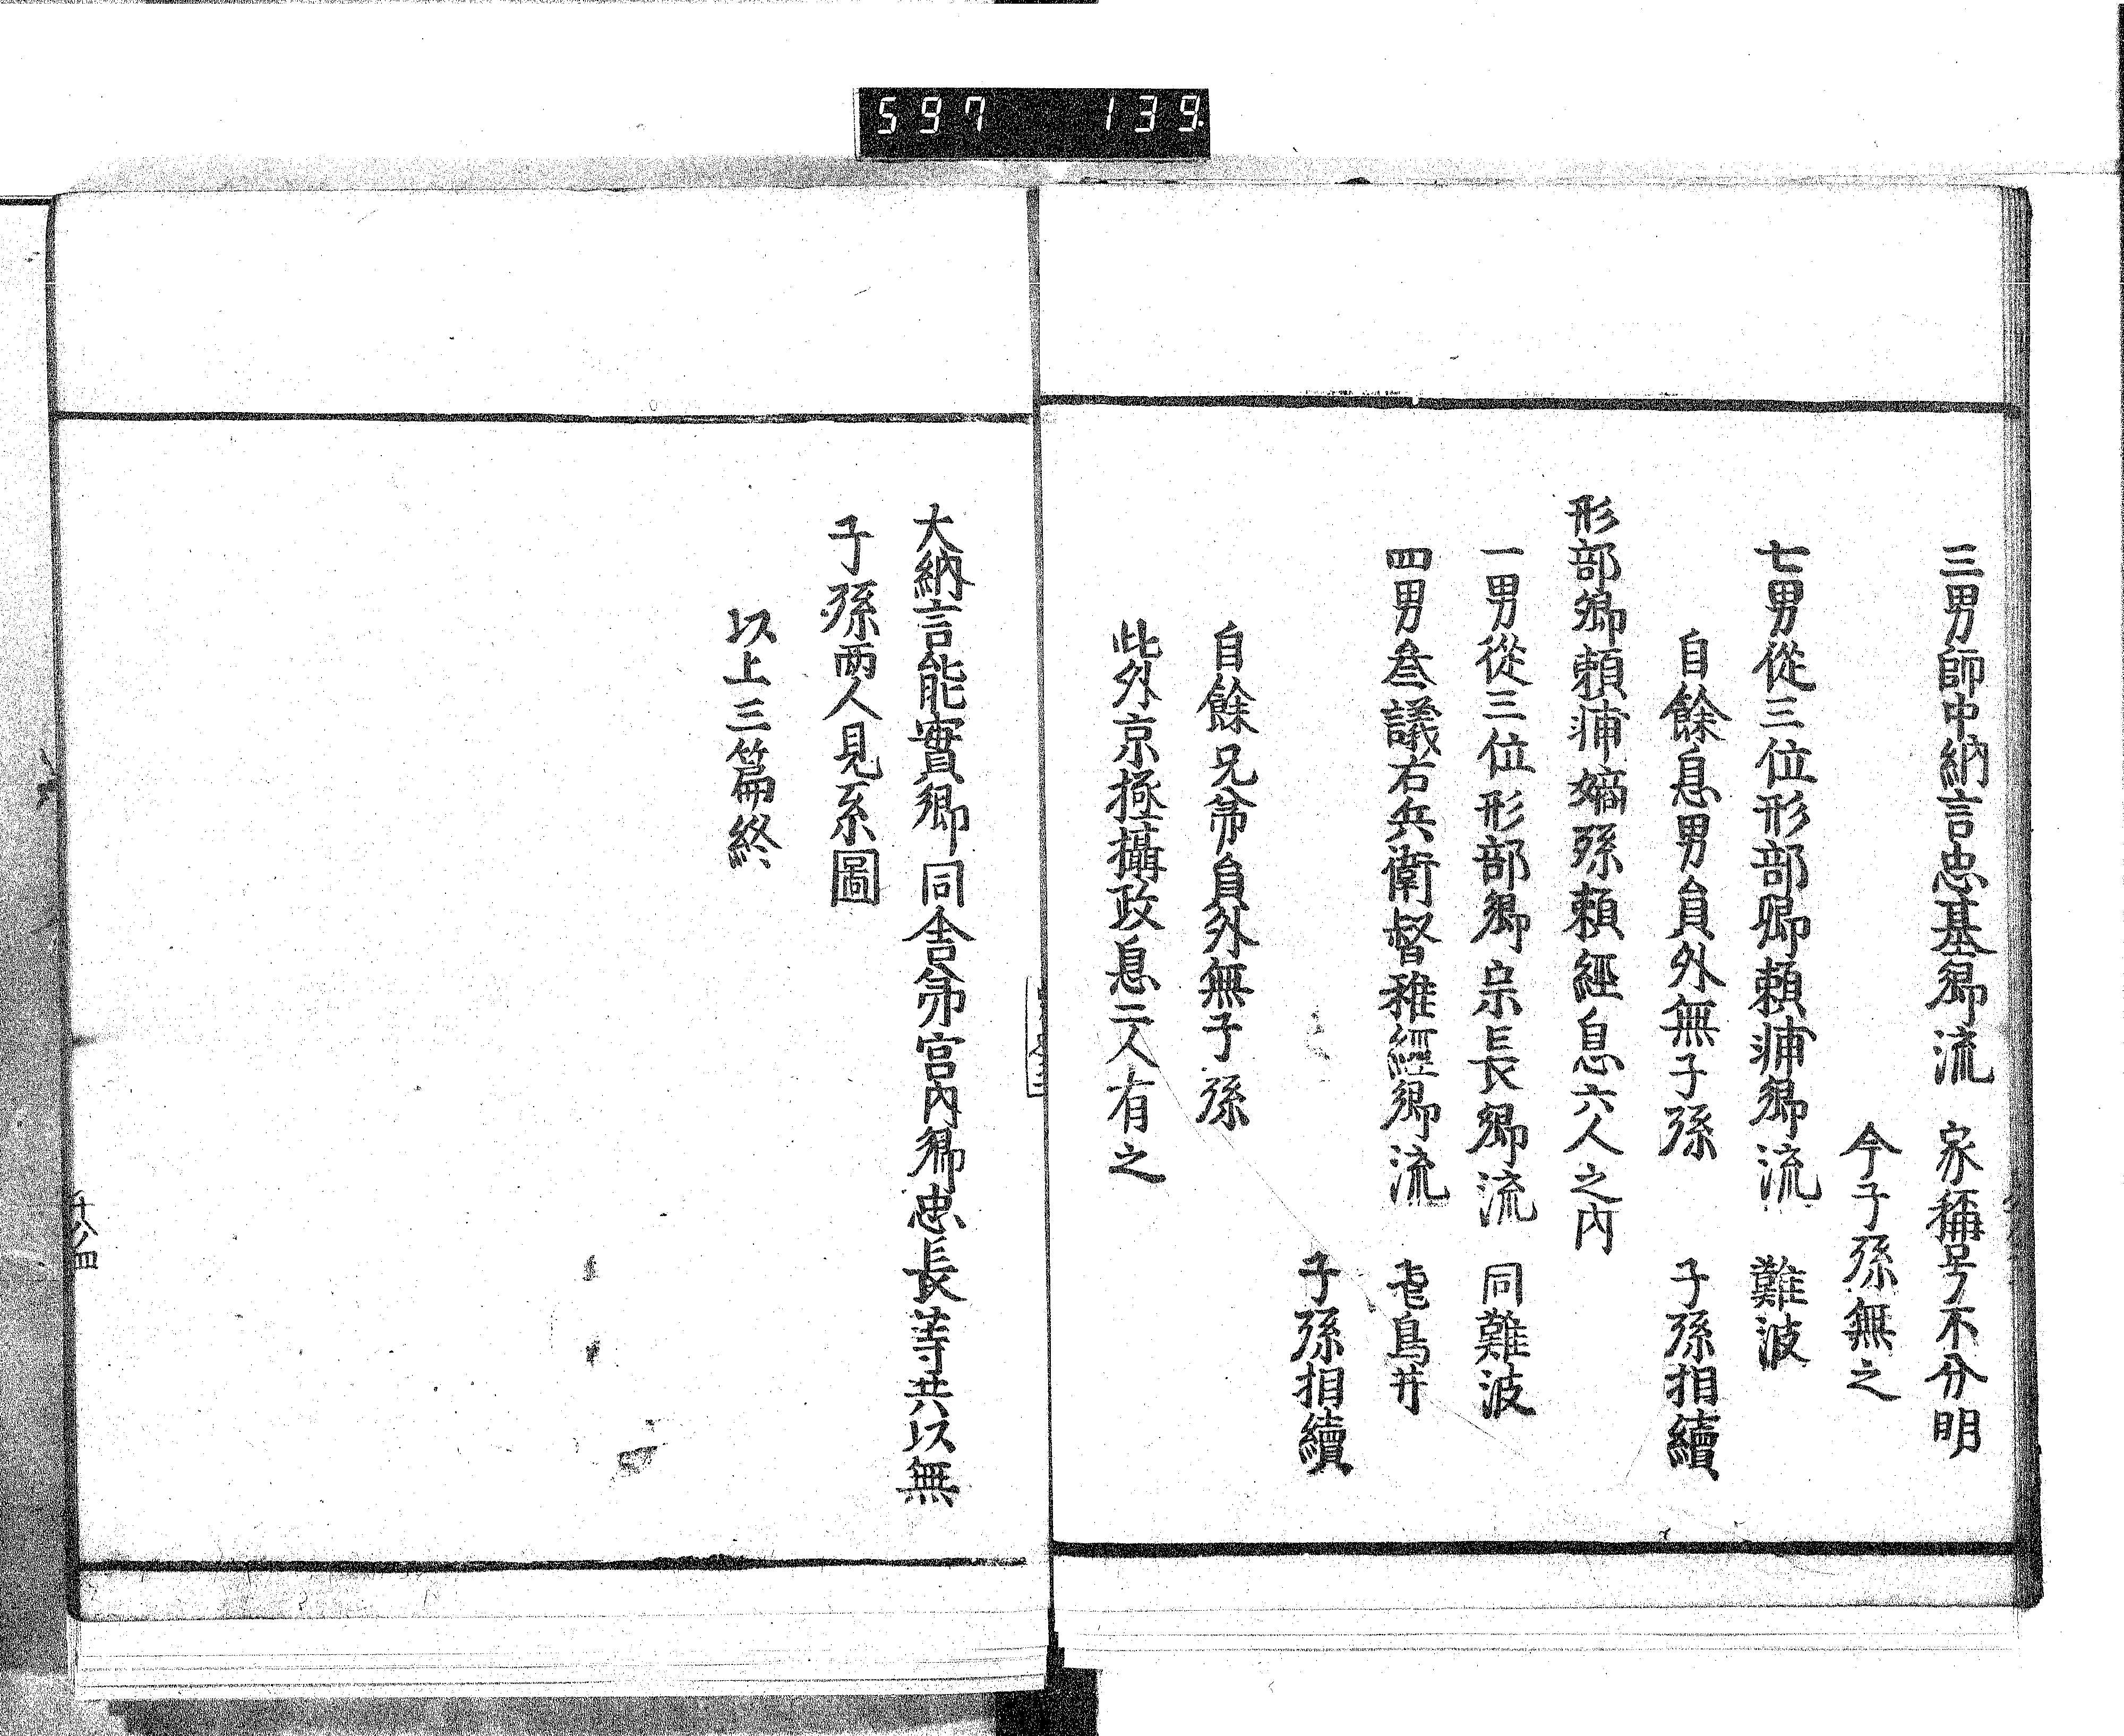 597 139
三男師中納言忠基卿流 家稱号不分明
今子孫無之
七男從三位形部卿頼輔卿流 難波
自餘息男員外無子孫 子孫相續
形部卿頼輔嫡孫頼經息六人之内
一男從三位形部卿宗長卿流 同難波
四男叄議右兵衛督雅經卿流 飛鳥井
子孫相續
自餘兄弟員外無子孫
此外京極攝政息二人有之
大納言能實卿同舍弟宮内卿忠長等共以無
子孫両人見系圖
以上三篇終